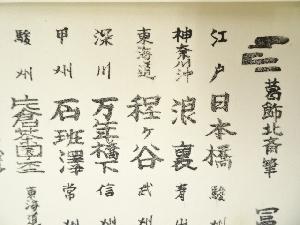 冨
葛飾北斎筆
江戸日本橋 駿州
神奈川沖浪裏 青山
東海道程ヶ谷 武州
深川万年橋下 信州
甲州石班澤 常州
駿州片倉茶園 東海道